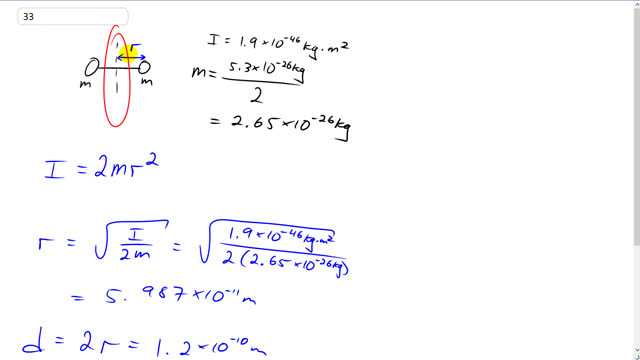 33
r
m m
I = 1.9 × 10⁻⁴⁶ kg·m²
m = 5.3 × 10⁻²⁶ kg / 2
= 2.65 × 10⁻²⁶ kg
I = 2mr²
r = √(I / 2m) = √(1.9 × 10⁻⁴⁶ kg·m² / 2(2.65 × 10⁻²⁶ kg))
= 5.987 × 10⁻¹¹ m
d = 2r = 1.2 × 10⁻¹⁰ m